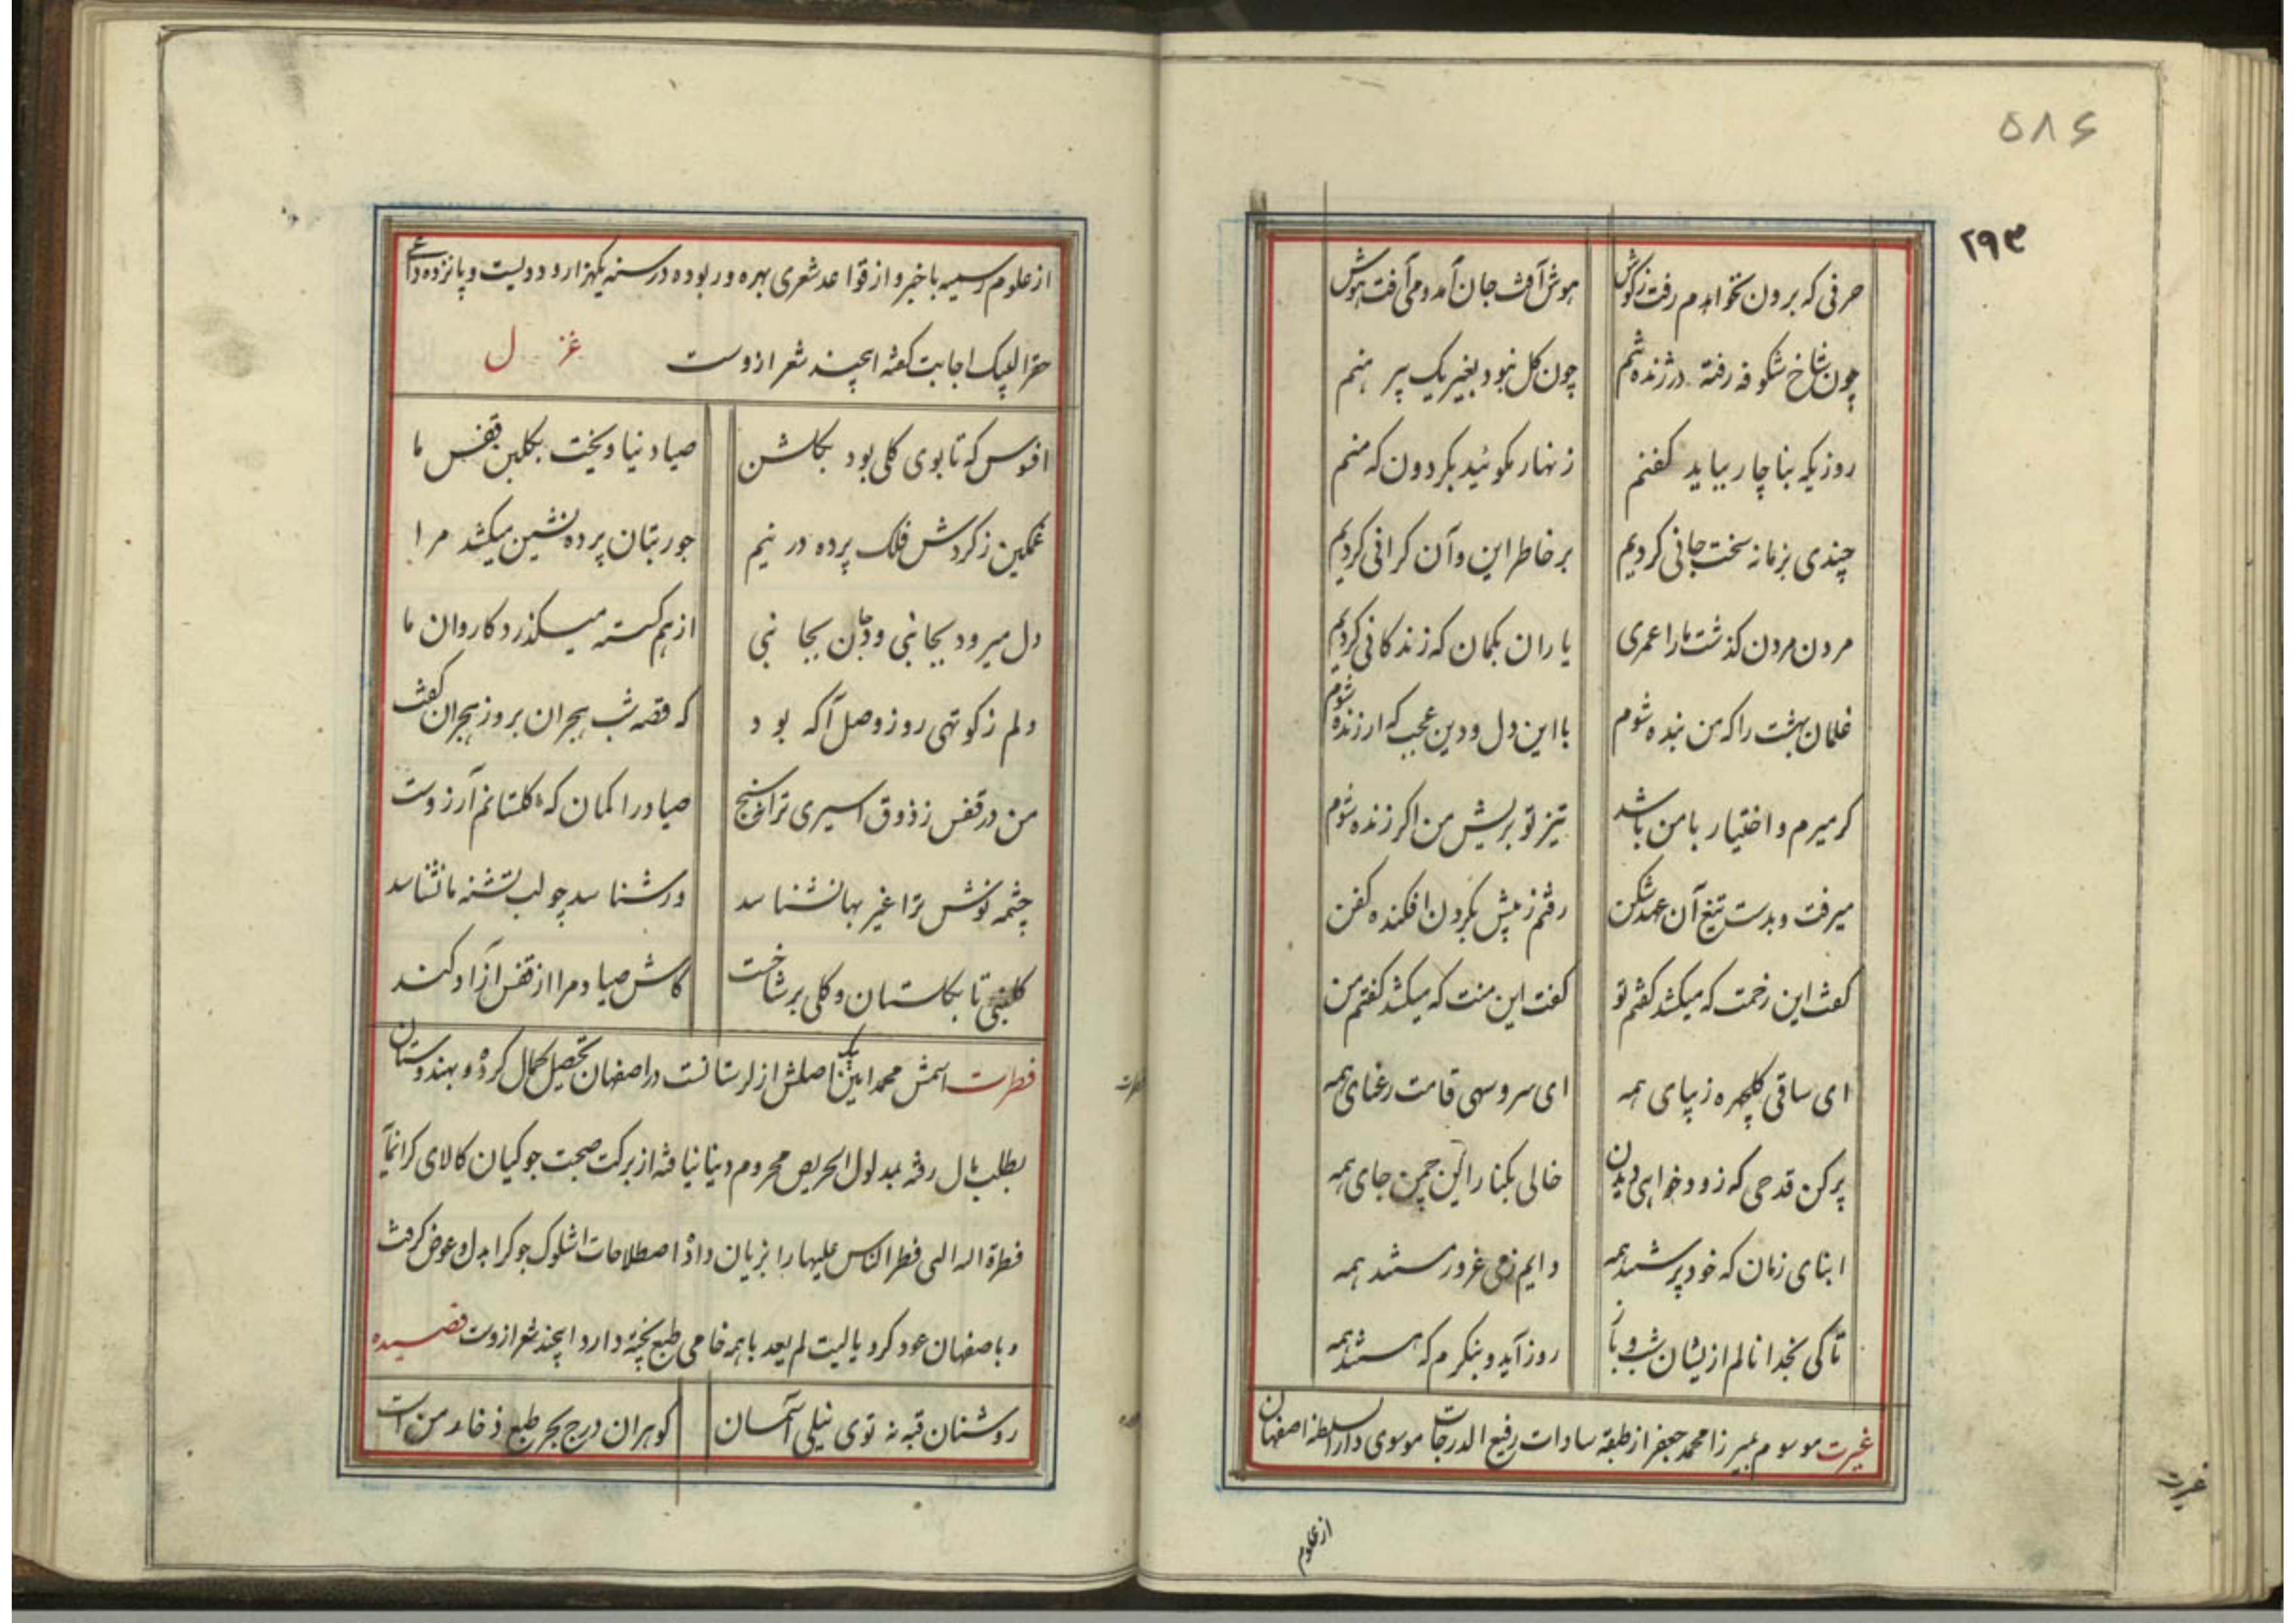 ۵۸۶
۲۹۳
حرفی که برون نخواهدم رفت ز گوش هوش آفت جان آمد و می آفت هوش
چون شاخ شکوفه رفته در ژنده شم چون کل نبود بغیر یک پیرهنم
روزیکه بناچار بباید کفنم زنهار مکوئید بکردون که منم
چندی بزمانه سخت جانی کردیم بر خاطر این و آن کرانی کردیم
مردن مردن کذشت ما را عمری یاران بکمان که زندکانی کردیم
غلمان بهشت را که من بنده شوم با این دل و دین عجب که ارزنده شوم
کر میرم و اختیار با من باشد تیز تو بریش من اکر زنده شوم
میرفت و بدست تیغ آن عهد شکن رفتم ز پیش بکردن افکنده کفن
کفت این زحمت که میکشد کفتم تو کفت این منت که میکشد کفتم من
ای ساقی کلچهره زیبای همه ای سرو سهی قامت رعنای همه
پر کن قدحی که زود خواهی دیدن خالی بکنار این چمن جای همه
ابنای زمان که خود پرستند همه دایم ز می غرور مستند همه
تا کی بخدا نالم ازیشان شب و باز روز آید و بنکرم که هستند همه
غیرت موسوم بمیرزا محمد جعفر از طبقه سادات رفیع الدرجات موسوی دار السلطنه اصفهان
از علوم
غیرت
از علوم رسمیه با خبر و از قواعد شعری بهره ور بوده در سنه یکهزار و دویست و پانزده داعی
حق را لبیک اجابت کفته اینچند شعر ازوست غزل
افسوس که تا بوی کلی بود بکلشن صیاد نیاویخت بکلبن قفس ما
غمکین ز کردش فلک پرده در نیم جور بتان پرده نشین میکشد مرا
دل میرود بجانبی و جان بجانبی از هم کسسته میکذرد کاروان ما
دلم ز کوتهی روز وصل آکه بود که قصه شب هجران بروز هجران کفت
من در قفس ز ذوق اسیری ترانه سنج صیاد را کمان که کلستانم آرزوست
چشمه نوش ترا غیر بها نشناسد ور شناسد چو لب تشنه ما نشناسد
کلبنی تا بکلستان و کلی بر شاخست کاش صیاد مرا از قفس آزاد کند
فطرت اسمش محمد امین بیک اصلش از لرستانست در اصفهان تحصیل کمال کرده و بهندوستان
بطلب مال رفته بمدلول الحریص محروم دینا نیافته از برکت صحبت جوکیان کالای کرانمایه
فطرة الله التی فطر الناس علیها را بزیان داده اصطلاحات اشلوک جوکرا بدل و عوض کرفت
و باصفهان عود کرد یا لیت لم یعد با همه خامی طبع پخته دارد اینچند شعر ازوست قصیده
روشنان قبه نه توی نیلی آسمان کوهران درج بحر طبع ذخار منست